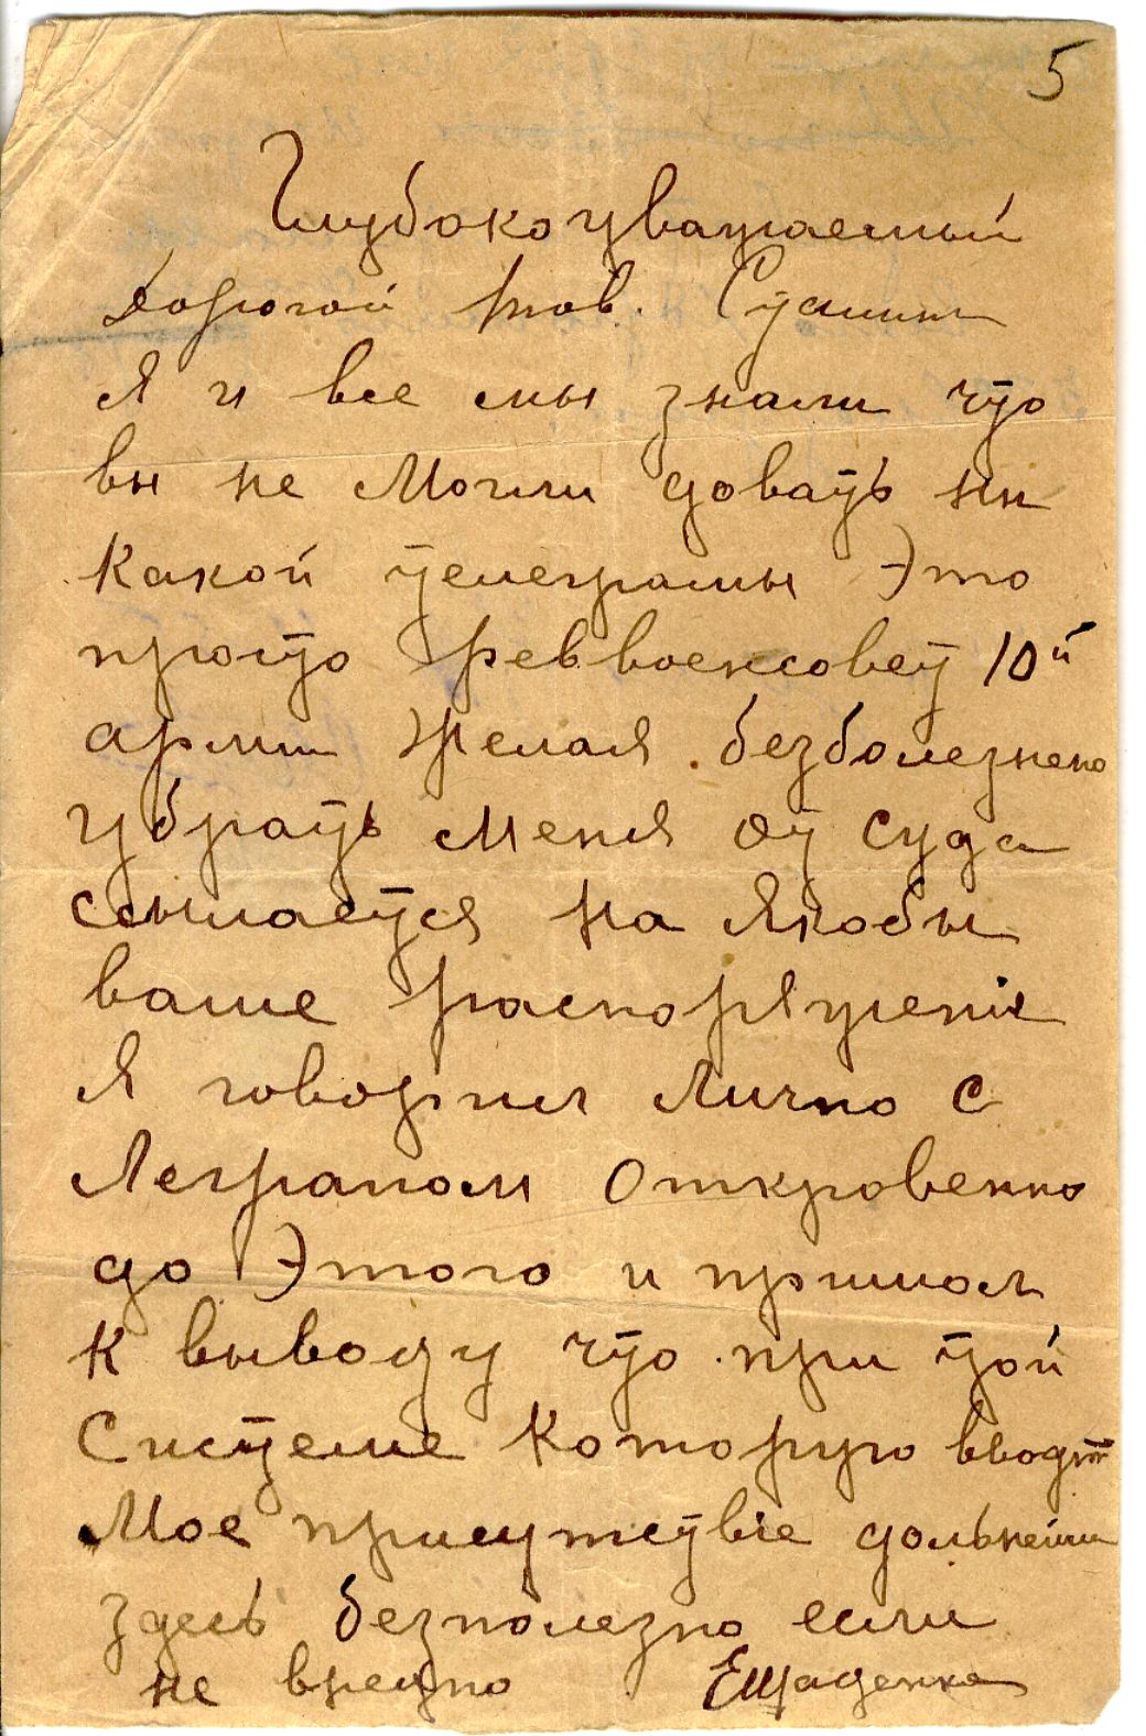 5
Глубокоуважаемый
Дорогой тов. Сталин
Я и все мы знали что
вы не Могли довать ни
какой телеграмы Это
просто Реввоенсовет 10й
армии Желая безболезнено
убрать Меня от суда
ссылается на Якобы
ваше распоряжение
Я говорил Лично с
Леграном Откровенно
до Этого и пришол
К выводу что при той
Системе Которую вводят
Мое присутствие дольнейши
здесь безполезно если
не вредно Ещаденко